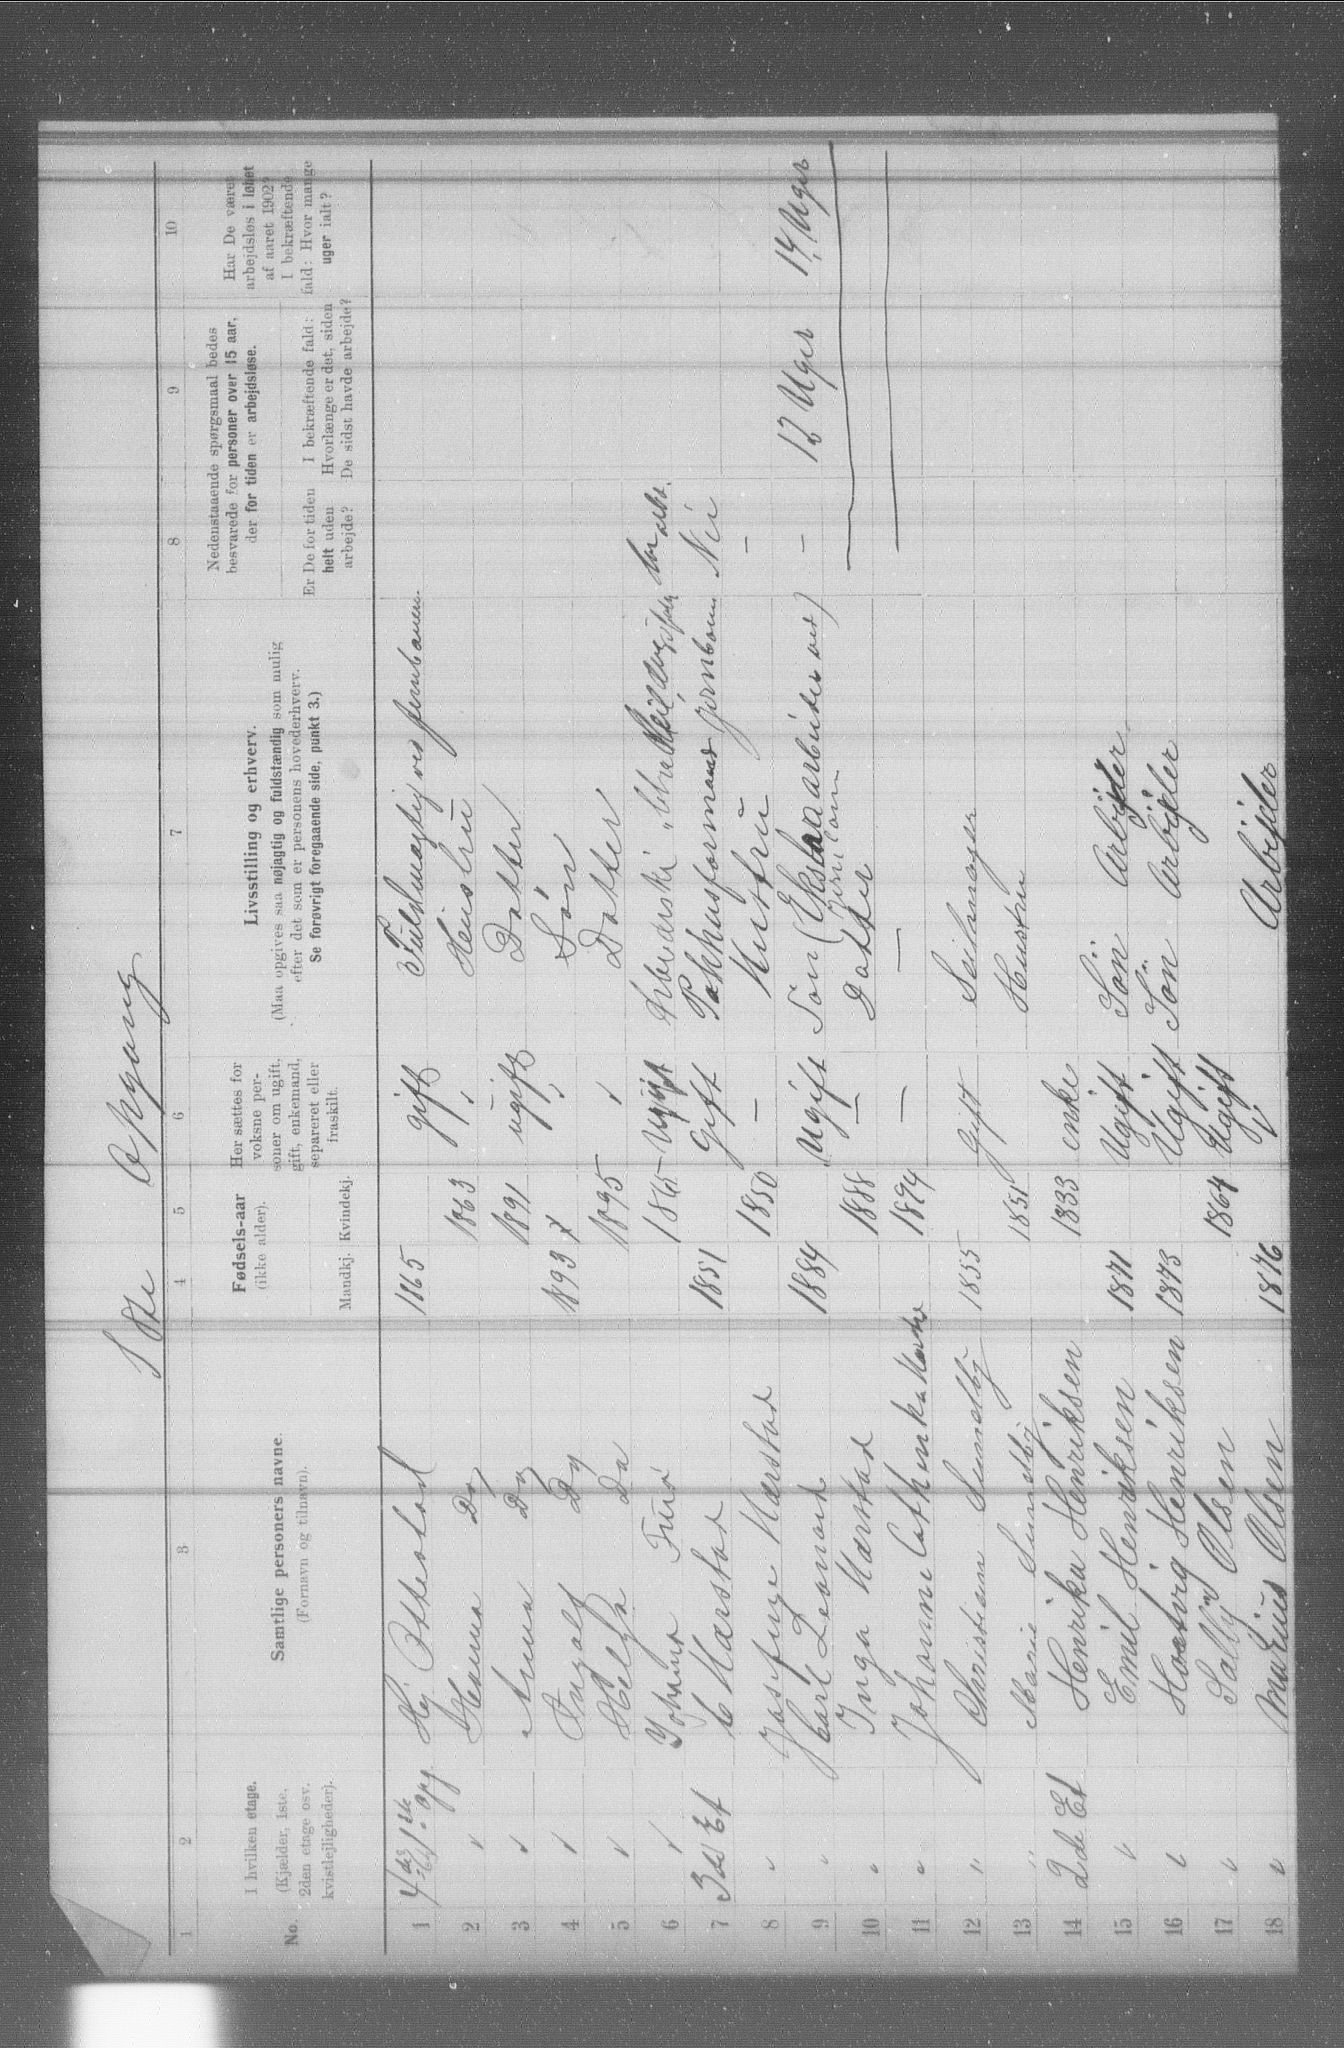 1ste Opgang
1 2 3 4 5 6 7 8 9 10
No.
I hvilken etage.
(Kjælder, 1ste,
2den etage osv.
kvistlejligheder).
Samtlige personers navne.
(Fornavn og tilnavn).
Fødsels-aar
(ikke alder).
Mandkj. Kvindekj.
Her sættes for
voksne per-
soner om ugift,
gift, enkemand,
separeret eller
fraskilt.
Livsstilling og erhverv.
(Maa opgives saa nøjagtig og fuldstændig som mulig
efter det som er personens hovederhverv.
Se forøvrigt foregaaende side, punkt 3.)
Nedenstaaende spørgsmaal bedes
besvarede for personer over 15 aar,
der for tiden er arbejdsløse.
Er De for tiden
helt uden
arbejde?
I bekræftende fald:
Hvorlænge er det, siden
De sidst havde arbejde?
Har De været
arbejdsløs i løbet
af aaret 1902?
I bekræftende
fald: Hvor mange
uger ialt?
1 4de 1ste opg. 1865 gift Fuldmægtig ved Jernbanen.
2 Hanna Do 1863 Hustru
3 Anna Do 1891 ugift Datter
4 Ingolf Do 1893 Søn
5 Helga Do 1895 Datter
6 1865 Ugift
7 3de Et Marstad 1851 Gift Pakhusformand Jernban. Nei
8 " Josefine Marstad 1850 — Hustru —
9 " Carl Leonard 1884 Ugift Søn (Ekstraarbeider ved Jernban) — 12 Uger 14 Uger
10 " Inga Marstad 1888 — Datter
11 " Johanne Cathinka Marstad 1894 — —
12 " Christian Sundby 1855 Gift Seilmager
13 " Marie Sundby 1851 Hustru
14 2de Et Henrika Henriksen 1833 enke
15 " Emil Henriksen 1871 Ugift Søn Arbejder
16 " Hartvig Henriksen 1873 Ugift Søn Arbejder
17 " Sally Olsen 1864 Ugift
18 " Marius Olsen 1876 " Arbejder